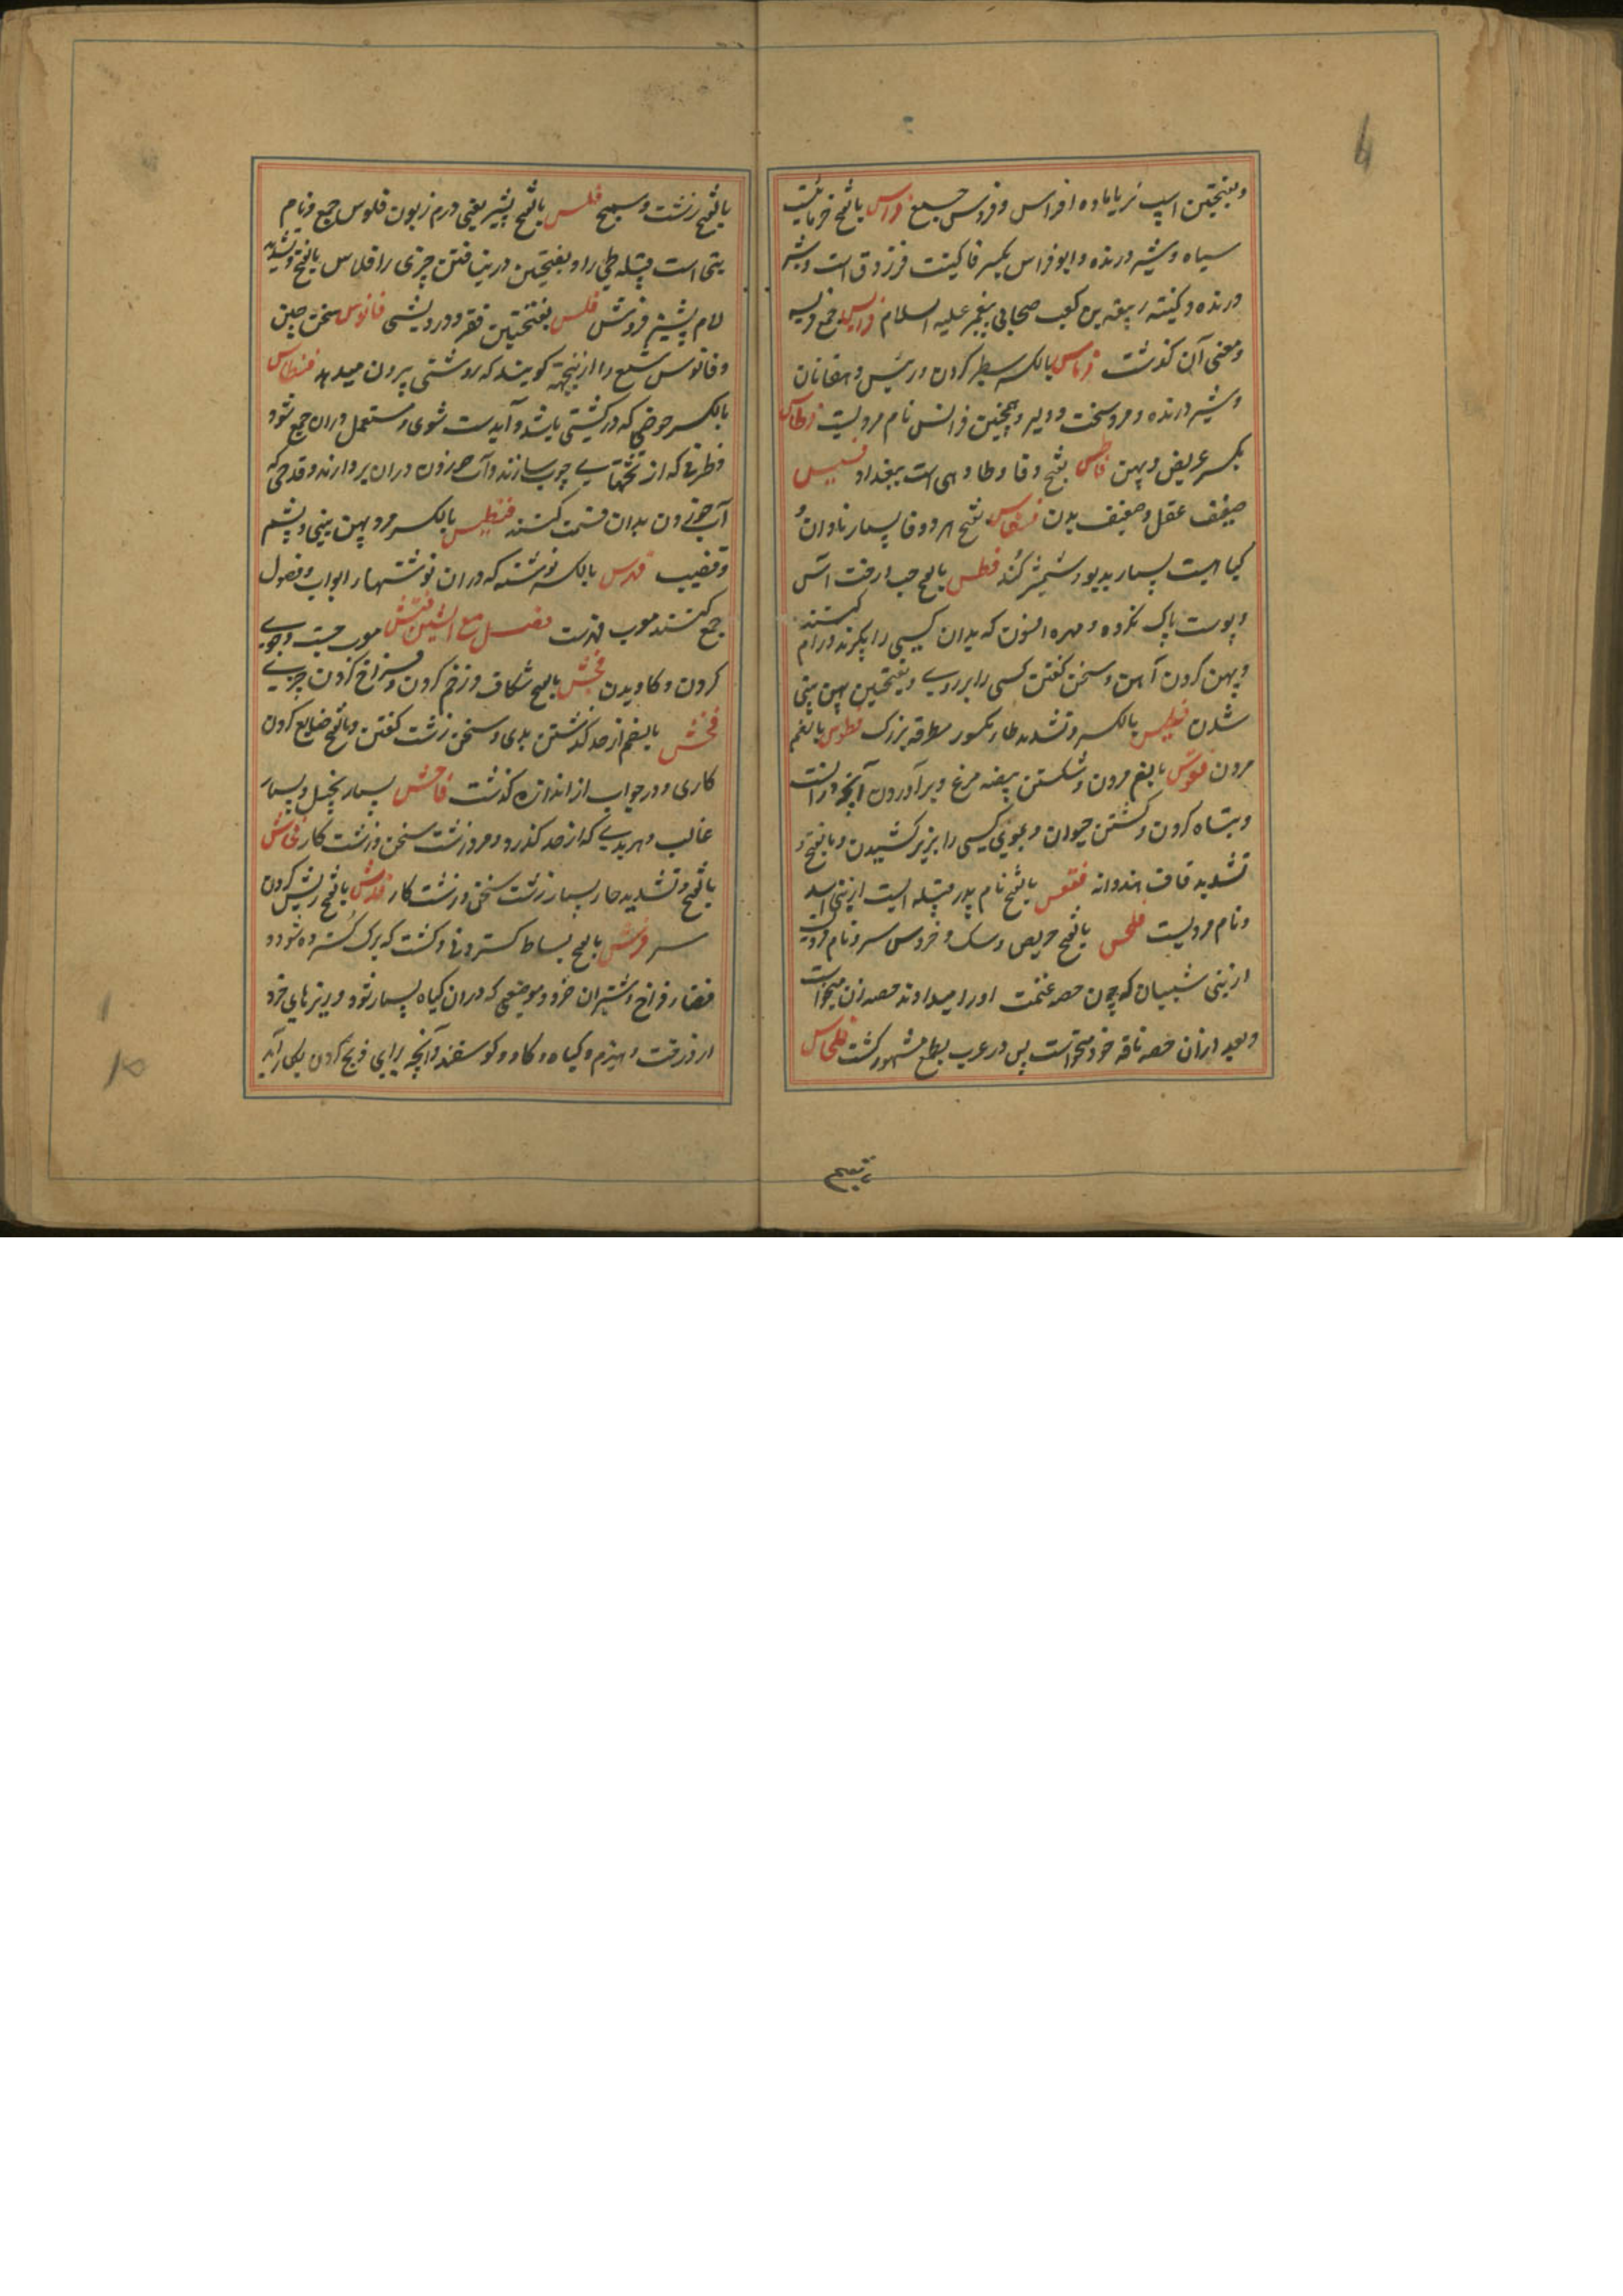 وبفتحتین اسپ نر یا ماده افراس و فروس جمع فراس بالفتح خرمائیست
سیاه و شیر درنده و ابوفراس بکسر فا کنیت فرزدق است و شیر
درنده و کنیته ربیعه بن کعب صحابی پیغمبر علیه السلام فرایس جمع فریسه
و معنی آن گذشت فرناس بالکسر سطبر گردن و رئیس دهقانان
و شیر درنده و مرد سخت و دلیر و همچنین فرانس نام مردیست فرطاس
بکسر عریض و پهن فاطس بفتح و قا و طا دهی است ببغداد فسیس
ضعیف عقل و ضعیف بدن فسفاس بفتح هر دو فا بسیار نادان و
گیاهیست بسیار بدبو و شمشیر کند فطس بالفتح حب درخت آس
و پوست پاک نکرده و مهره افسون که بدان کسی را بگیرند و رام کنند
و پهن کردن آهن و سخن گفتن کسی را برروی و بفتحتین پهن بینی
شدن فطیس بالکسر و تشدید طاء مکسور مطرقه بزرگ فطوس بالضم
مردن فقوس بالضم مردن و شکستن بیضه مرغ و برآوردن آنچه درانست
و تباه کردن و کشتن حیوان و بموی کسی را بزیر کشیدن و بالفتح و
تشدید قاف هندوانه فقعس بالفتح نام پدر قبیله ایست از بنی اسد
و نام مردیست فلحس بالفتح حریص و سگ و خرس و نام مردیست
از بنی شیبان که چون حصه غنیمت او را میدادند حصه زن میخواست
و بعد ازان حصه ناقه خود میخواست پس در عرب بطمع مشهور گشت فلحاس
بقبیح
بالفتح زشت و سمج فلس بالفتح پشیز یعنی درم زبون فلوس جمع و نام
بتی است قبیله طی را و بفتحتین دریافتن چیزی را فلاس بالفتح و تشدید
لام پشیز فروش فلس بفتحتین فقر و درویشی فانوس سخن چین
و فانوس شمع را ازینجهة گویند که روشنی بیرون میدهد فنطاس
بالکسر حوضی که در کشتی باشد و آبدست شوی و مستعمل دران جمع شود
و ظرفی که از تختهای چوب سازند و آب خوردن دران بردارند و قدحی که
آب خوردن بدان قسمت کنند فنطیس بالکسر مرد پهن بینی و پشم
و قضیب فهرس بالکسر نوشته که دران نوشتهاء ابواب و فصول
جمع کنند معرب فهرست فصل مع الشین فتش معرب جست وجوی
کردن و کاویدن فجش بالفتح شکاف و زخم کردن و فراخ کردن چیزی
فحش بالضم از حد گذشتن بدی و سخن زشت گفتن و بالفتح ضایع کردن
کاری و در جواب از اندازه گذشت فاحش بسیار بخیل و بسیار
غالب و هر بدی که از حد گذرد و مرد زشت سخن و زشت کار فحاش
بالفتح و تشدید حاء بسیار زشت سخن و زشت کار فدش بالفتح ریش کردن
سر فرش بالفتح بساط گستردنی و کشت که برک گسترده شود و
فضاء فراخ و شتران خرد و موضعی که دران گیاه بسیار شود و ریزهای خرد
از درخت و هیزم و گیاه و گاو و گوسفند و آنچه برای ذبح کردن بکار آید